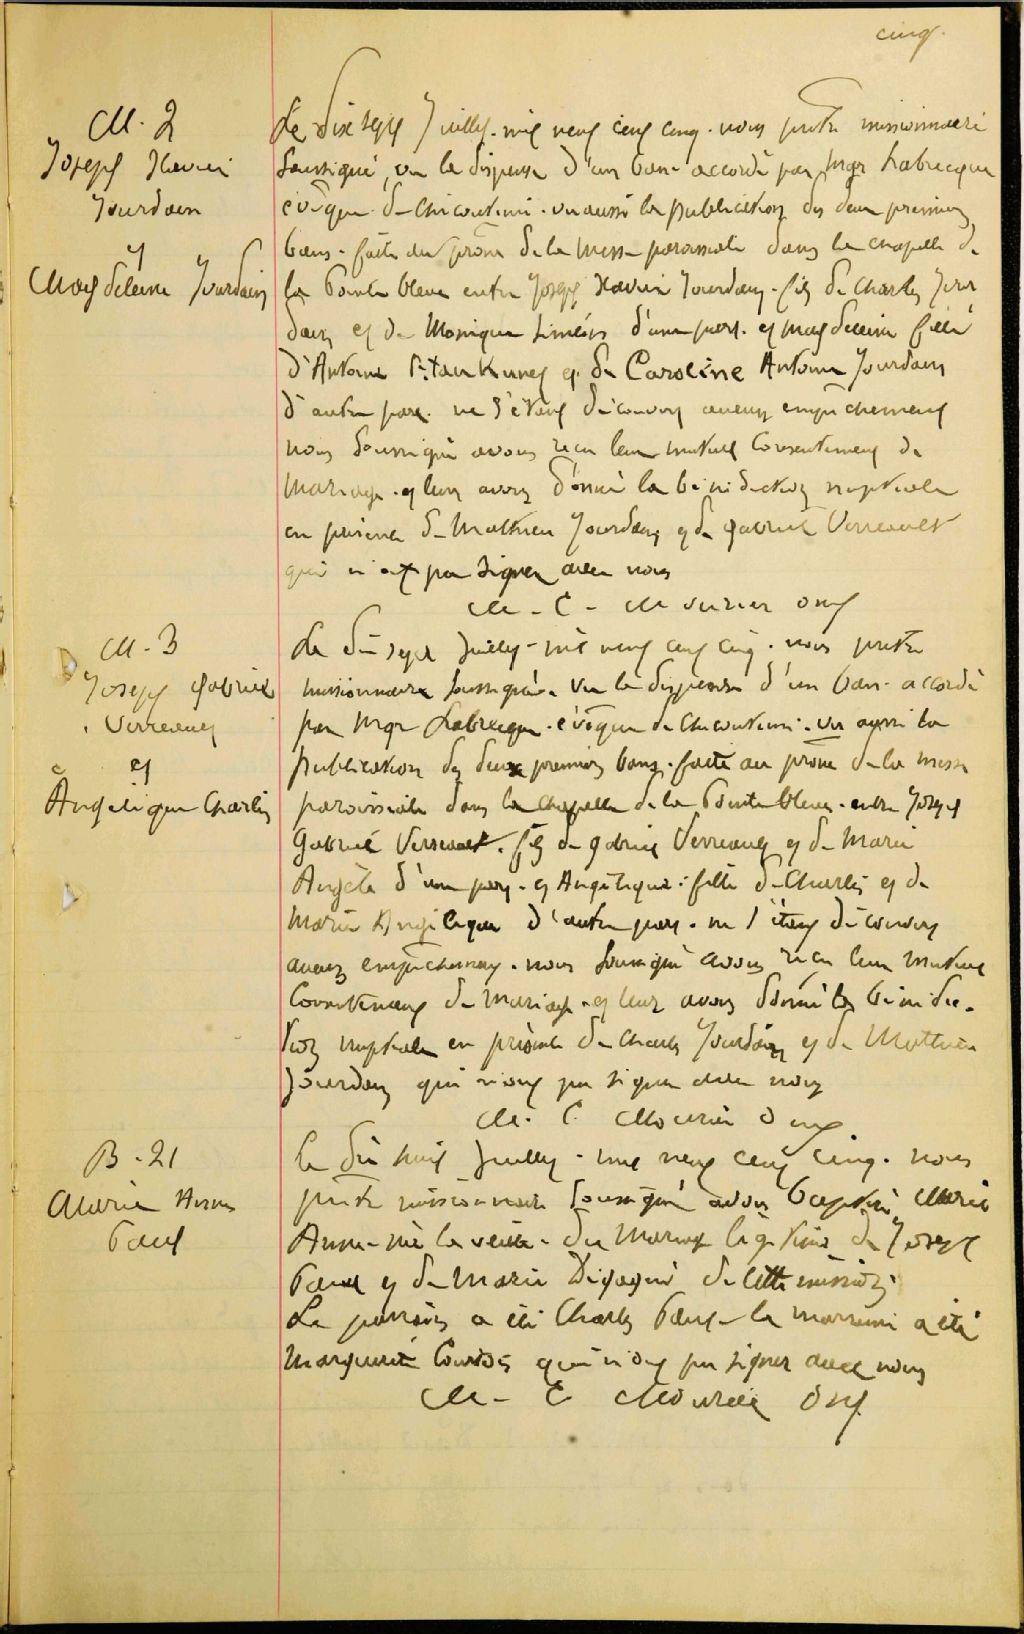 cinq.
M. 2
Joseph Xavier
Jourdain
et
Magdeleine Jourdain
Le dix sept Juillet mil neuf cent cinq. nous prêtre missionnaire
soussigné, vu la dispense d'un ban accordé par Mgr Labrecque
évêque de Chicoutimi. vu aussi la publication des deux premiers
bans. faite au prône de la messe paroissiale dans la chapelle de
la Pointe bleue entre Joseph Xavier Jourdain. fils de Charles Jour
dain et de Monique Siméon d'une part. et Magdeleine fille
d'Antoine et de Caroline Antoine Jourdain
d'autre part. ne s'étant découvert aucun empêchement
nous soussigné avons reçu leur mutuel consentement de
mariage. et leur avons donné la bénédiction nuptiale
en présence de Mathieu Jourdain et de Gabriel Verreault
qui n'ont pu signer avec nous
M. E. Mourier omi
M. 3
Joseph Gabriel
Verreault
et
Angélique Charles
Le dix sept Juillet mil neuf cent cinq. nous prêtre
missionnaire soussigné. vu la dispense d'un ban accordé
par Mgr Labrecque. évêque de Chicoutimi. vu aussi la
publication des deux premiers bans. faite au prône de la messe
paroissiale dans la chapelle de la Pointe bleue. entre Joseph
Gabriel Verreault. fils de gabriel Verreault et de Marie
Angèle d'une part. et Angélique. fille de Charles et de
Marie Angélique d'autre part. ne s'étant découvert
aucun empêchement. nous soussigné avons reçu leur mutuel
consentement de mariage. et leur avons donné la bénédic-
tion nuptiale en présence de Charles Jourdain et de Mathieu
Jourdain qui n'ont pu signer avec nous
M. E. Mourier omi
B. 21
Marie Anne
Paul
le dix huit Juillet. mil neuf cent cinq. nous
prêtre missionnaire soussigné avons baptisé Marie
Anne. née la veille. du mariage légitime de Joseph
Paul et de Marie de cette mission.
Le parrain a été Charles Paul. la marraine a été
Marguerite Courtois qui n'ont pu signer avec nous
M. E. Mourier omi